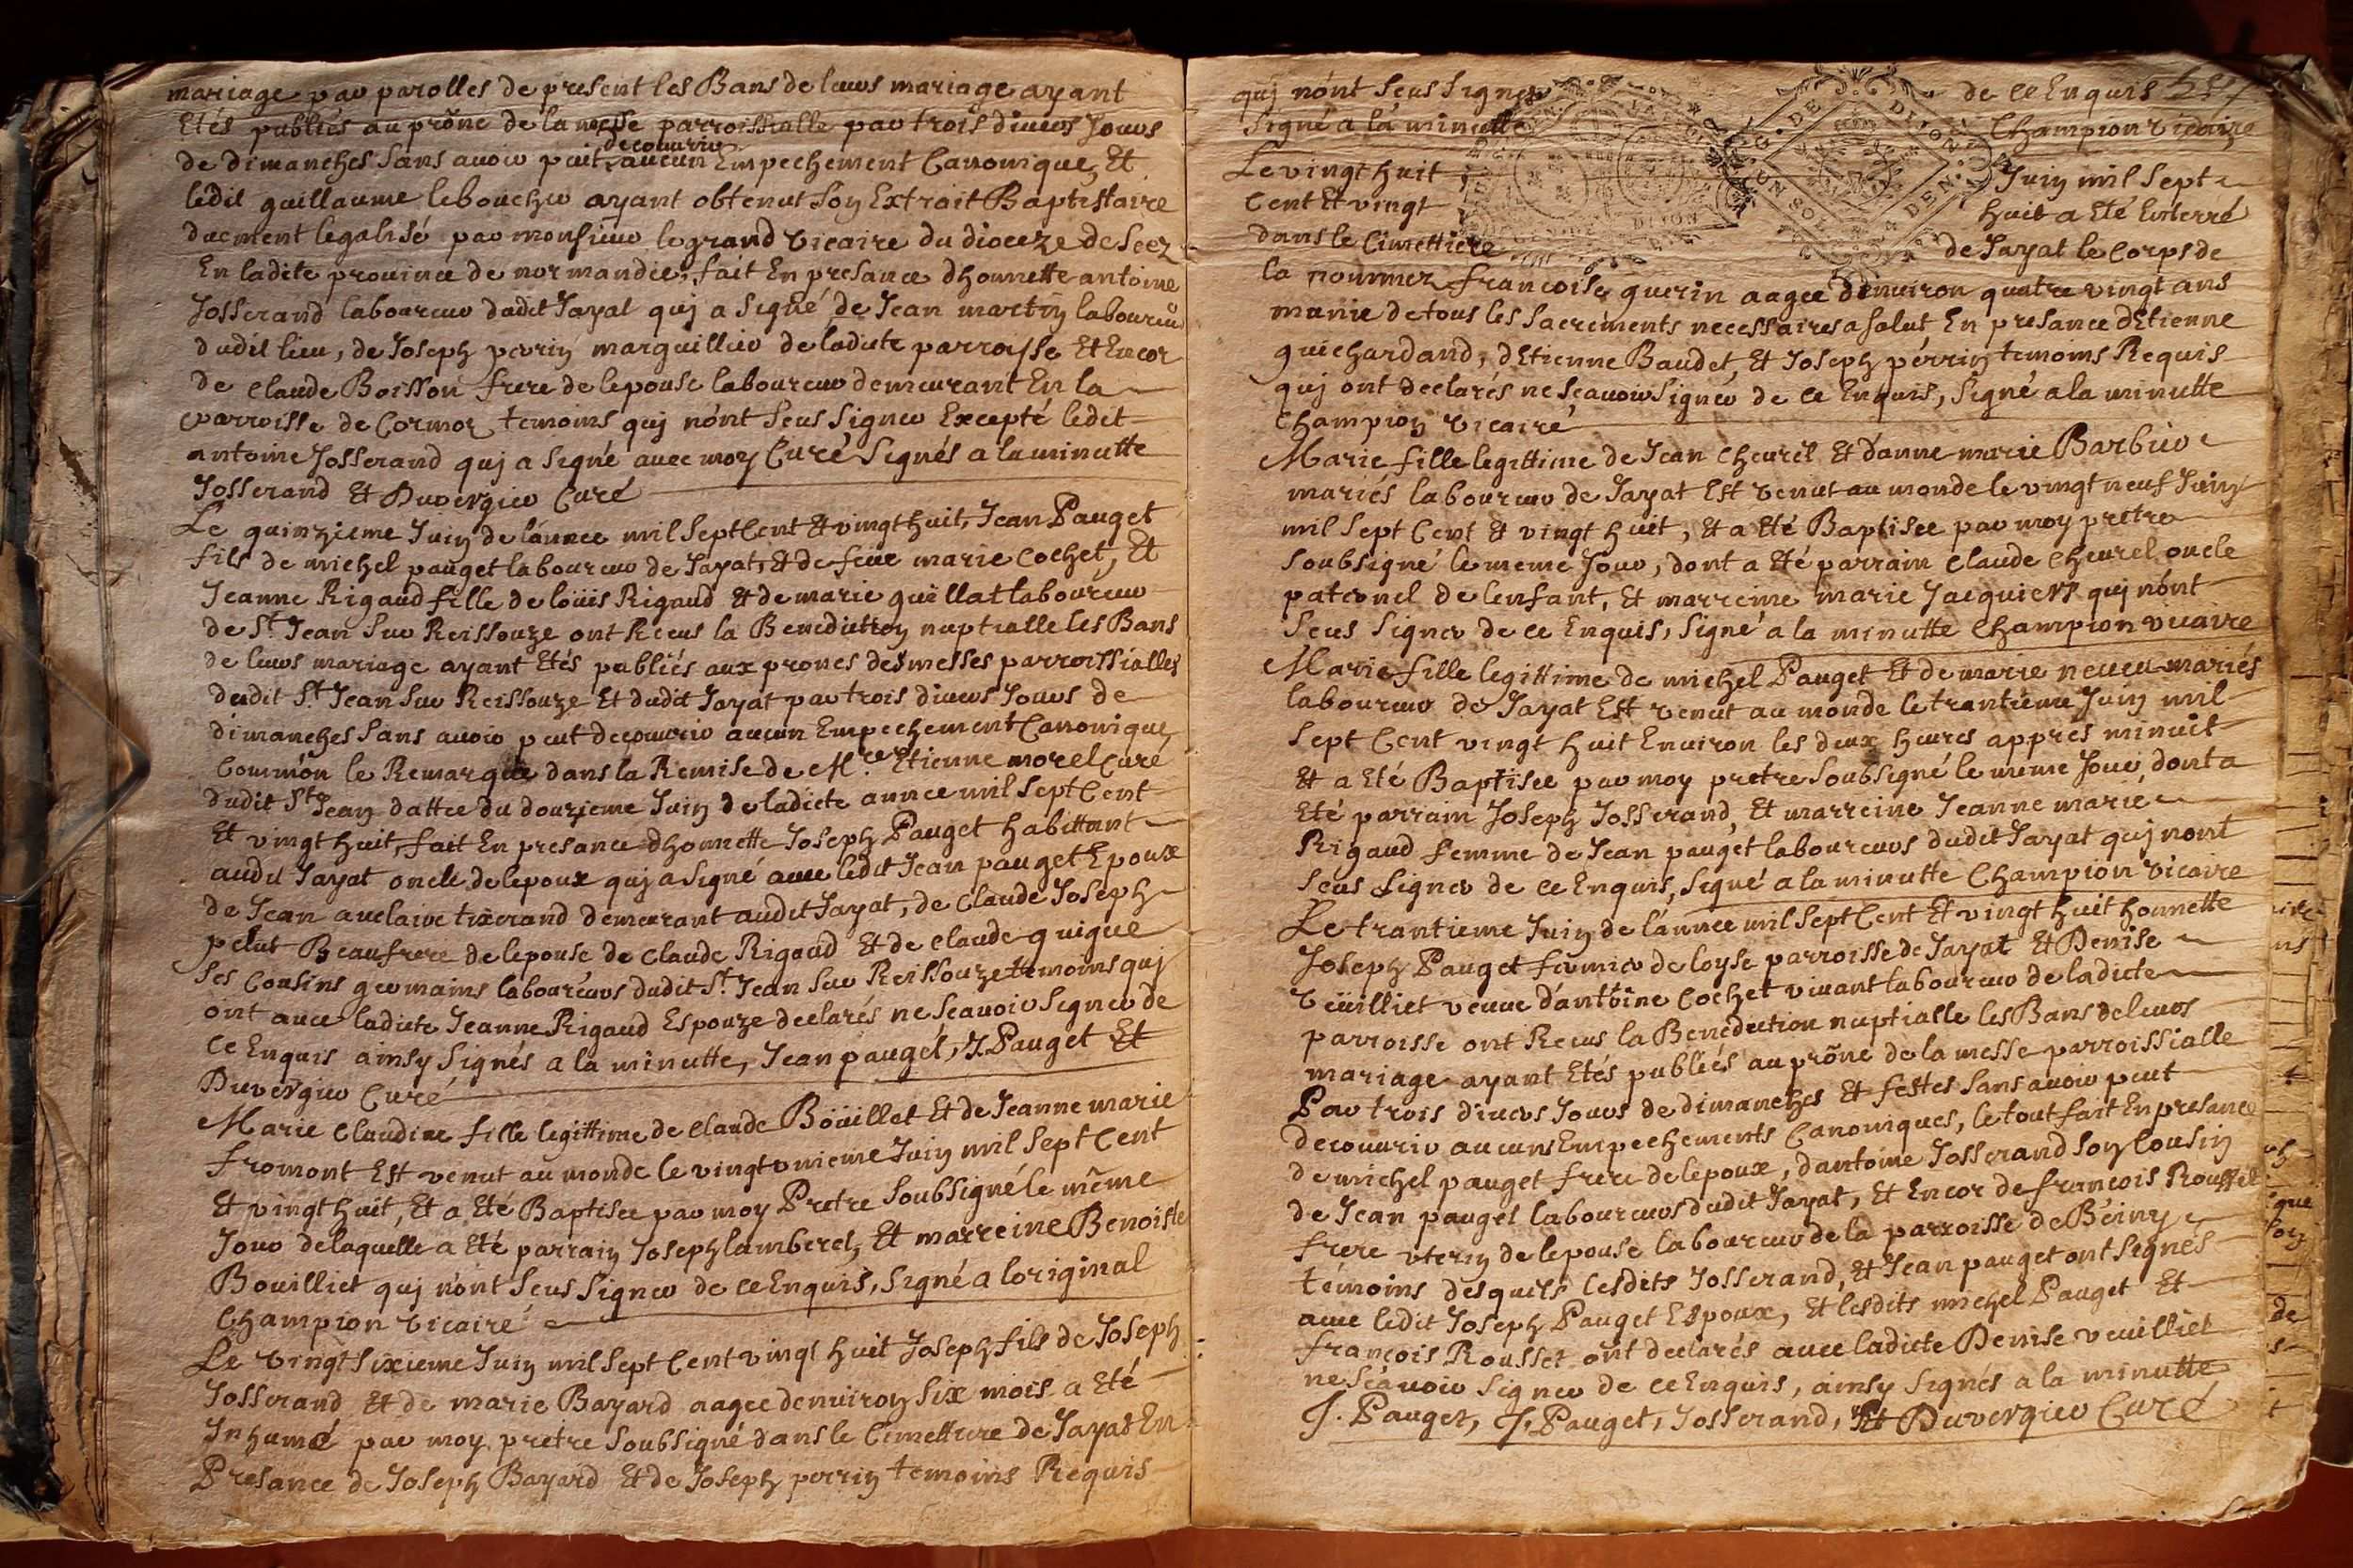 mariage par parolles de present les Bans de leurs mariage ayant
Etés publiés au prône de la messe parroissialle par trois divers Jours
decouvrir
de dimanches sans avoir puit aucun Empechement Canonique, Et
ledit guillaume lebouchu ayant obtenut son Extrait Baptistaire
duement legalisé par monsieur le grand vicaire du dioceze de Seez
En ladite province de normandie, fait En presance dhonnette antoine
Josserand laboureur dudit Jayat quj a signé de Jean martin laboureur
dudit lieu, de Joseph perrin marguillier de ladicte parroisse Et Encor
de Claude Boisson frere de lepouse laboureur demeurant En la
parroisse de Cormoz temoins quj nónt sceus signer Excepté ledit
antoine Josserand quj a signé avec moy Curé Signés a la minutte
Josserand Et Duvergier Curé
Le quinzieme Juin de lánnee mil Sept Cent Et vingt huit, Jean Pauget
fils de michel pauget laboureur de Jayat, Et de feüe marie Cochet, Et
Jeanne Rigaud fille de loüis Rigaud Et de marie guillat laboureur
de St. Jean sur Reissouze ont Receus la Benediction nuptialle les Bans
de leurs mariage ayant Etés publiés aux prones des messes parroissialles
dudit St. Jean sur Reissouze Et dudit Jayat par trois divers Jours de
dimanches sans avoir peut decouvrir aucun Empechement Canonique
Comme on le Remarque dans la Remise de Mre. Etienne morel Curé
dudit St. Jean dattee du douzieme Juin de ladicte annee mil Sept Cent
Et vingt huit, fait En presance dhonnette Joseph Pauget habittant
audit Jayat oncle de lepoux quj a signé avec ledit Jean pauget Epoux
de Jean auclaire tixerand demeurant audit Jayat, de Claude Joseph
pelut Beaufrere de lepouse de Claude Rigaud Et de Claude guigue
ses Cousins germains laboureurs dudit St. Jean sur Reissouze temoins quj
ont avec ladicte Jeanne Rigaud Espouze declarés ne Sçavoir Signer de
ce Enquis ainsy Signés a la minutte, Jean pauget, J. Pauget Et
Duvergier Curé
Marie Claudine fille legittime de Claude Boüillet Et de Jeanne marie
fromont Est venut au monde le vingt unieme Juin mil Sept Cent
Et vingt huit, Et a Eté Baptisee par moy Pretre Soubsigné le même
Jour de laquelle a Eté parrain Joseph lamberet, Et marreine Benoiste
Bouilliet quj nónt sceus signer de ce Enquis, Signé a loriginal
Champion vicaire
Le vingt sixieme Juin mil Sept Cent vingt huit Joseph fils de Joseph
Josserand Et de marie Bayard aagee denviron Six mois a Eté
Inhumé par moy pretre Soubsigné dans le Cimettiere de Jayat En
Presance de Joseph Bayard Et de Joseph perrin temoins Requis
quj nónt sceus Signer de ce Enquis
Signé a la minutte Champion vicaire
Le vingt huit Juin mil Sept
Cent Et vingt huit a Eté Enterré
dans le Cimettiere de Jayat le Corps de
la nommee francoise guerin aagee denviron quatre vingt ans
munie de tous les Sacrements necessaires a salut En presance dEtienne
guichardand, dEtienne Baudet, Et Joseph perrin temoins Requis
quj ont declarés ne Sçavoir Signer de ce Enquis, Signé a la minutte
Champion vicaire
Marie fille legittime de Jean Cheurel Et danne marie Barbier
mariés laboureur de Jayat Est venut au monde le vingt neuf Juin
mil Sept Cent Et vingt huit, Et a Eté Baptisee par moy pretre
Soubsigné le meme Jour, dont a Eté parrain Claude Cheurel oncle
paternel de lenfant, Et marreine marie Jacquiert quj nónt
sceus Signer de ce Enquis, Signé a la minutte Champion vicaire
Marie fille legittime de michel Pauget Et de marie neveu mariés
laboureur de Jayat Est venut au monde le trantieme Juin mil
Sept Cent vingt huit Environ les deux heures apprés minuit
Et a Eté Baptisee par moy pretre Soubsigné le meme Jour dont a
Eté parrain Joseph Josserand, Et marreine Jeanne marie
Rigaud femme de Jean pauget laboureurs dudit Jayat quj nont
sceus Signer de ce Enquis, Signé a la minutte Champion vicaire
Le trantieme Juin de lánnee mil Sept Cent Et vingt huit honnette
Joseph Pauget fermier de loyse parroisse de Jayat Et Denise
veüilliet veuve dantoine Cochet vivant laboureur de ladicte
parroisse ont Receus la Benediction nuptialle les Bans de leurs
mariage ayant Etés publiés au prône de la messe parroissialle
Par trois divers Jours de dimanches Et festes sans avoir peut
decouvrir aucuns Empechements Canoniques, le tout fait En presance
de michel pauget frere de lepoux, dantoine Josserand son Cousin
de Jean pauget laboureurs dudit Jayat, Et Encor de françois Rousset
frere uterin de lepouse laboureur de la parroisse de Béiny
témoins desquels lesdits Josserand, Et Jean pauget ont Signés
avec ledit Joseph Pauget Epoux, Et lesdits michel Pauget Et
françois Rousset ont declarés avec ladicte Denise veuilliet
ne Sçavoir Signer de ce Enquis, ainsy Signés a la minutte
J. Pauget, J. Pauget, Josserand, Et Duvergier Curé